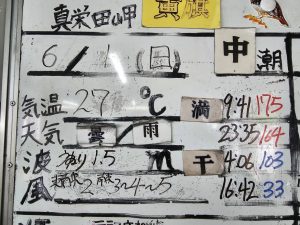 真栄田岬 黄旗
6/1(日) 中 朝
気温 27 ℃ 満 9:41 175
天気 曇/雨 23:35 164
波 うねり1.5 m 干 4:06 163
風 南東2 3~4~5 16:42 33